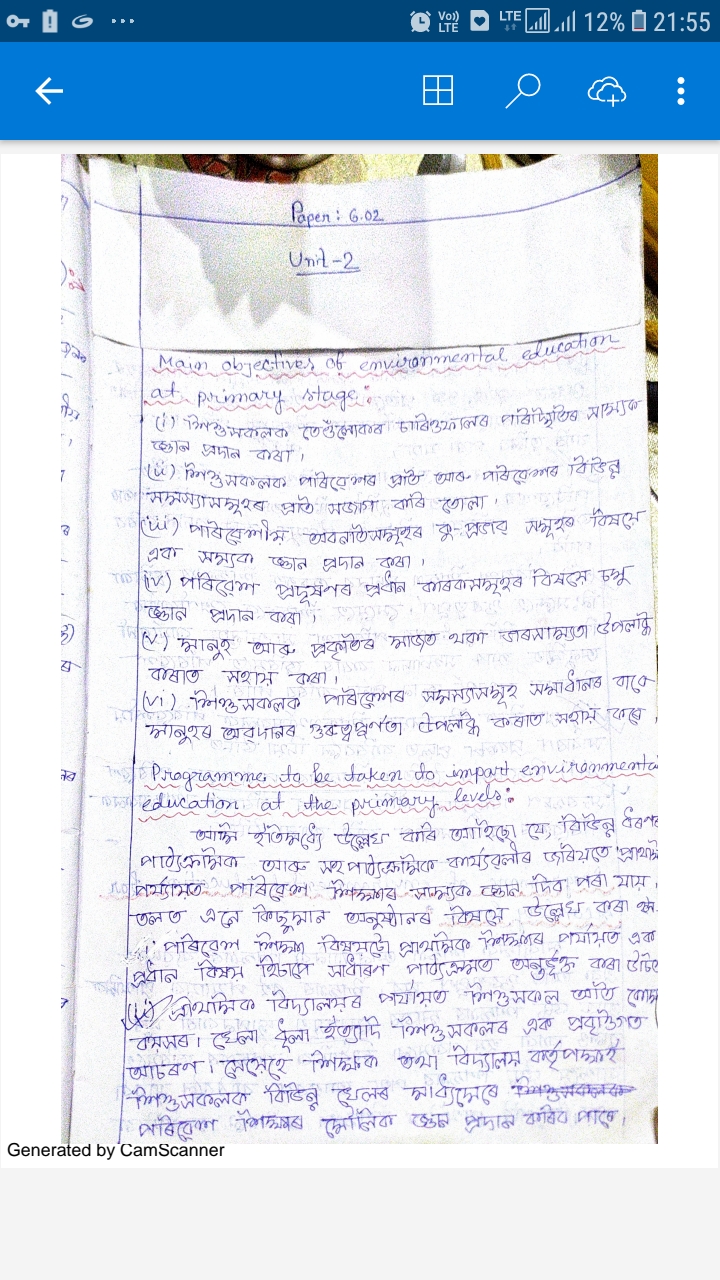 Vo))
LTE
LTE
12%
21:55
Paper: 6.02
Unit-2
Main objectives of environmental education
at primary stage:
(i) শিশুসকলক তেওঁলোকৰ চাৰিওফালৰ পৰিস্থিতিৰ সম্যক
জ্ঞান প্ৰদান কৰা।
(ii) শিশুসকলক পৰিৱেশৰ প্ৰতি আৰু পৰিৱেশৰ বিভিন্ন
সমস্যাসমূহৰ প্ৰতি সজাগ কৰি তোলা।
(iii) পৰিৱেশীয় অৱনতিসমূহৰ কু-প্ৰভাৱ সমূহৰ বিষয়ে
এক সম্যক জ্ঞান প্ৰদান কৰা।
(iv) পৰিৱেশ প্ৰদূষণৰ প্ৰধান কাৰকসমূহৰ বিষয়ে চমু
জ্ঞান প্ৰদান কৰা।
(v) মানুহ আৰু প্ৰকৃতিৰ মাজত থকা ভাৰসাম্যতা উপলব্ধি
কৰাত সহায় কৰা।
(vi) শিশুসকলক পৰিৱেশৰ সমস্যাসমূহ সমাধানৰ বাবে
মানুহৰ অৱদানৰ গুৰুত্বপূৰ্ণতা উপলব্ধি কৰাত সহায় কৰে।
Programme to be taken to impart environmenta
education at the primary levels:
আমি ইতিমধ্যে উল্লেখ কৰি আহিছো যে বিভিন্ন ধৰণৰ
পাঠ্যক্ৰমিক আৰু সহপাঠ্যক্ৰমিক কাৰ্য্যৱলীৰ জৰিয়তে
পৰ্য্যায়ত পৰিৱেশ শিক্ষাৰ সম্যক জ্ঞান দিব পৰা যায়।
তলত এনে কিছুমান অনুষ্ঠানৰ বিষয়ে উল্লেখ কৰা
i. পৰিৱেশ শিক্ষা বিষয়টো প্ৰাথমিক শিক্ষাৰ পৰ্যায়ত এক
প্ৰধান বিষয় হিচাপে সাধাৰণ পাঠ্যক্ৰমত অন্তৰ্ভুক্ত কৰা
(ii) প্ৰাথমিক বিদ্যালয়ৰ পৰ্যায়ত শিশুসকল অতি
বয়সৰ। খেলা ধূলা ইত্যাদি শিশুসকলৰ এক প্ৰবৃত্তিগত
আচৰণ। সেয়েহে শিক্ষক তথা বিদ্যালয় কৰ্তৃপক্ষই
শিশুসকলক বিভিন্ন খেলৰ মাধ্যমেৰে শিশুসকলক
পৰিৱেশ শিক্ষাৰ মৌলিক জ্ঞান প্ৰদান কৰিব পাৰে।
Generated by CamScanner